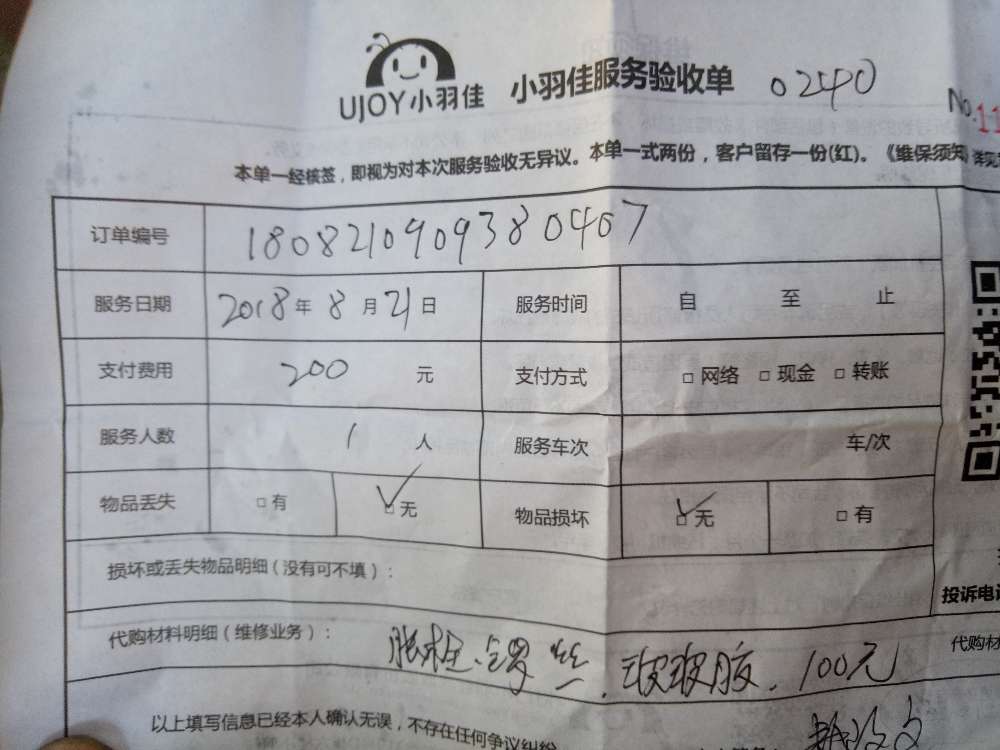 UJOY小羽佳 小羽佳服务验收单 0240 No.11
本单一经核签，即视为对本次服务验收无异议。本单一式两份，客户留存一份(红)。《维保须知
订单编号 1808210909380467
服务日期 2018年8月21日 服务时间 自 至 止
支付费用 200 元 支付方式 □网络 □现金 □转账
服务人数 1 人 服务车次 车/次
物品丢失 □有 ✓□无 物品损坏 ✓□无 □有
损坏或丢失物品明细（没有可不填）：
投诉电
代购材料明细（维修业务）： 胀栓、锣丝、玻玻胶、100元 代购材
以上填写信息已经本人确认无误，不存在任何争议纠纷